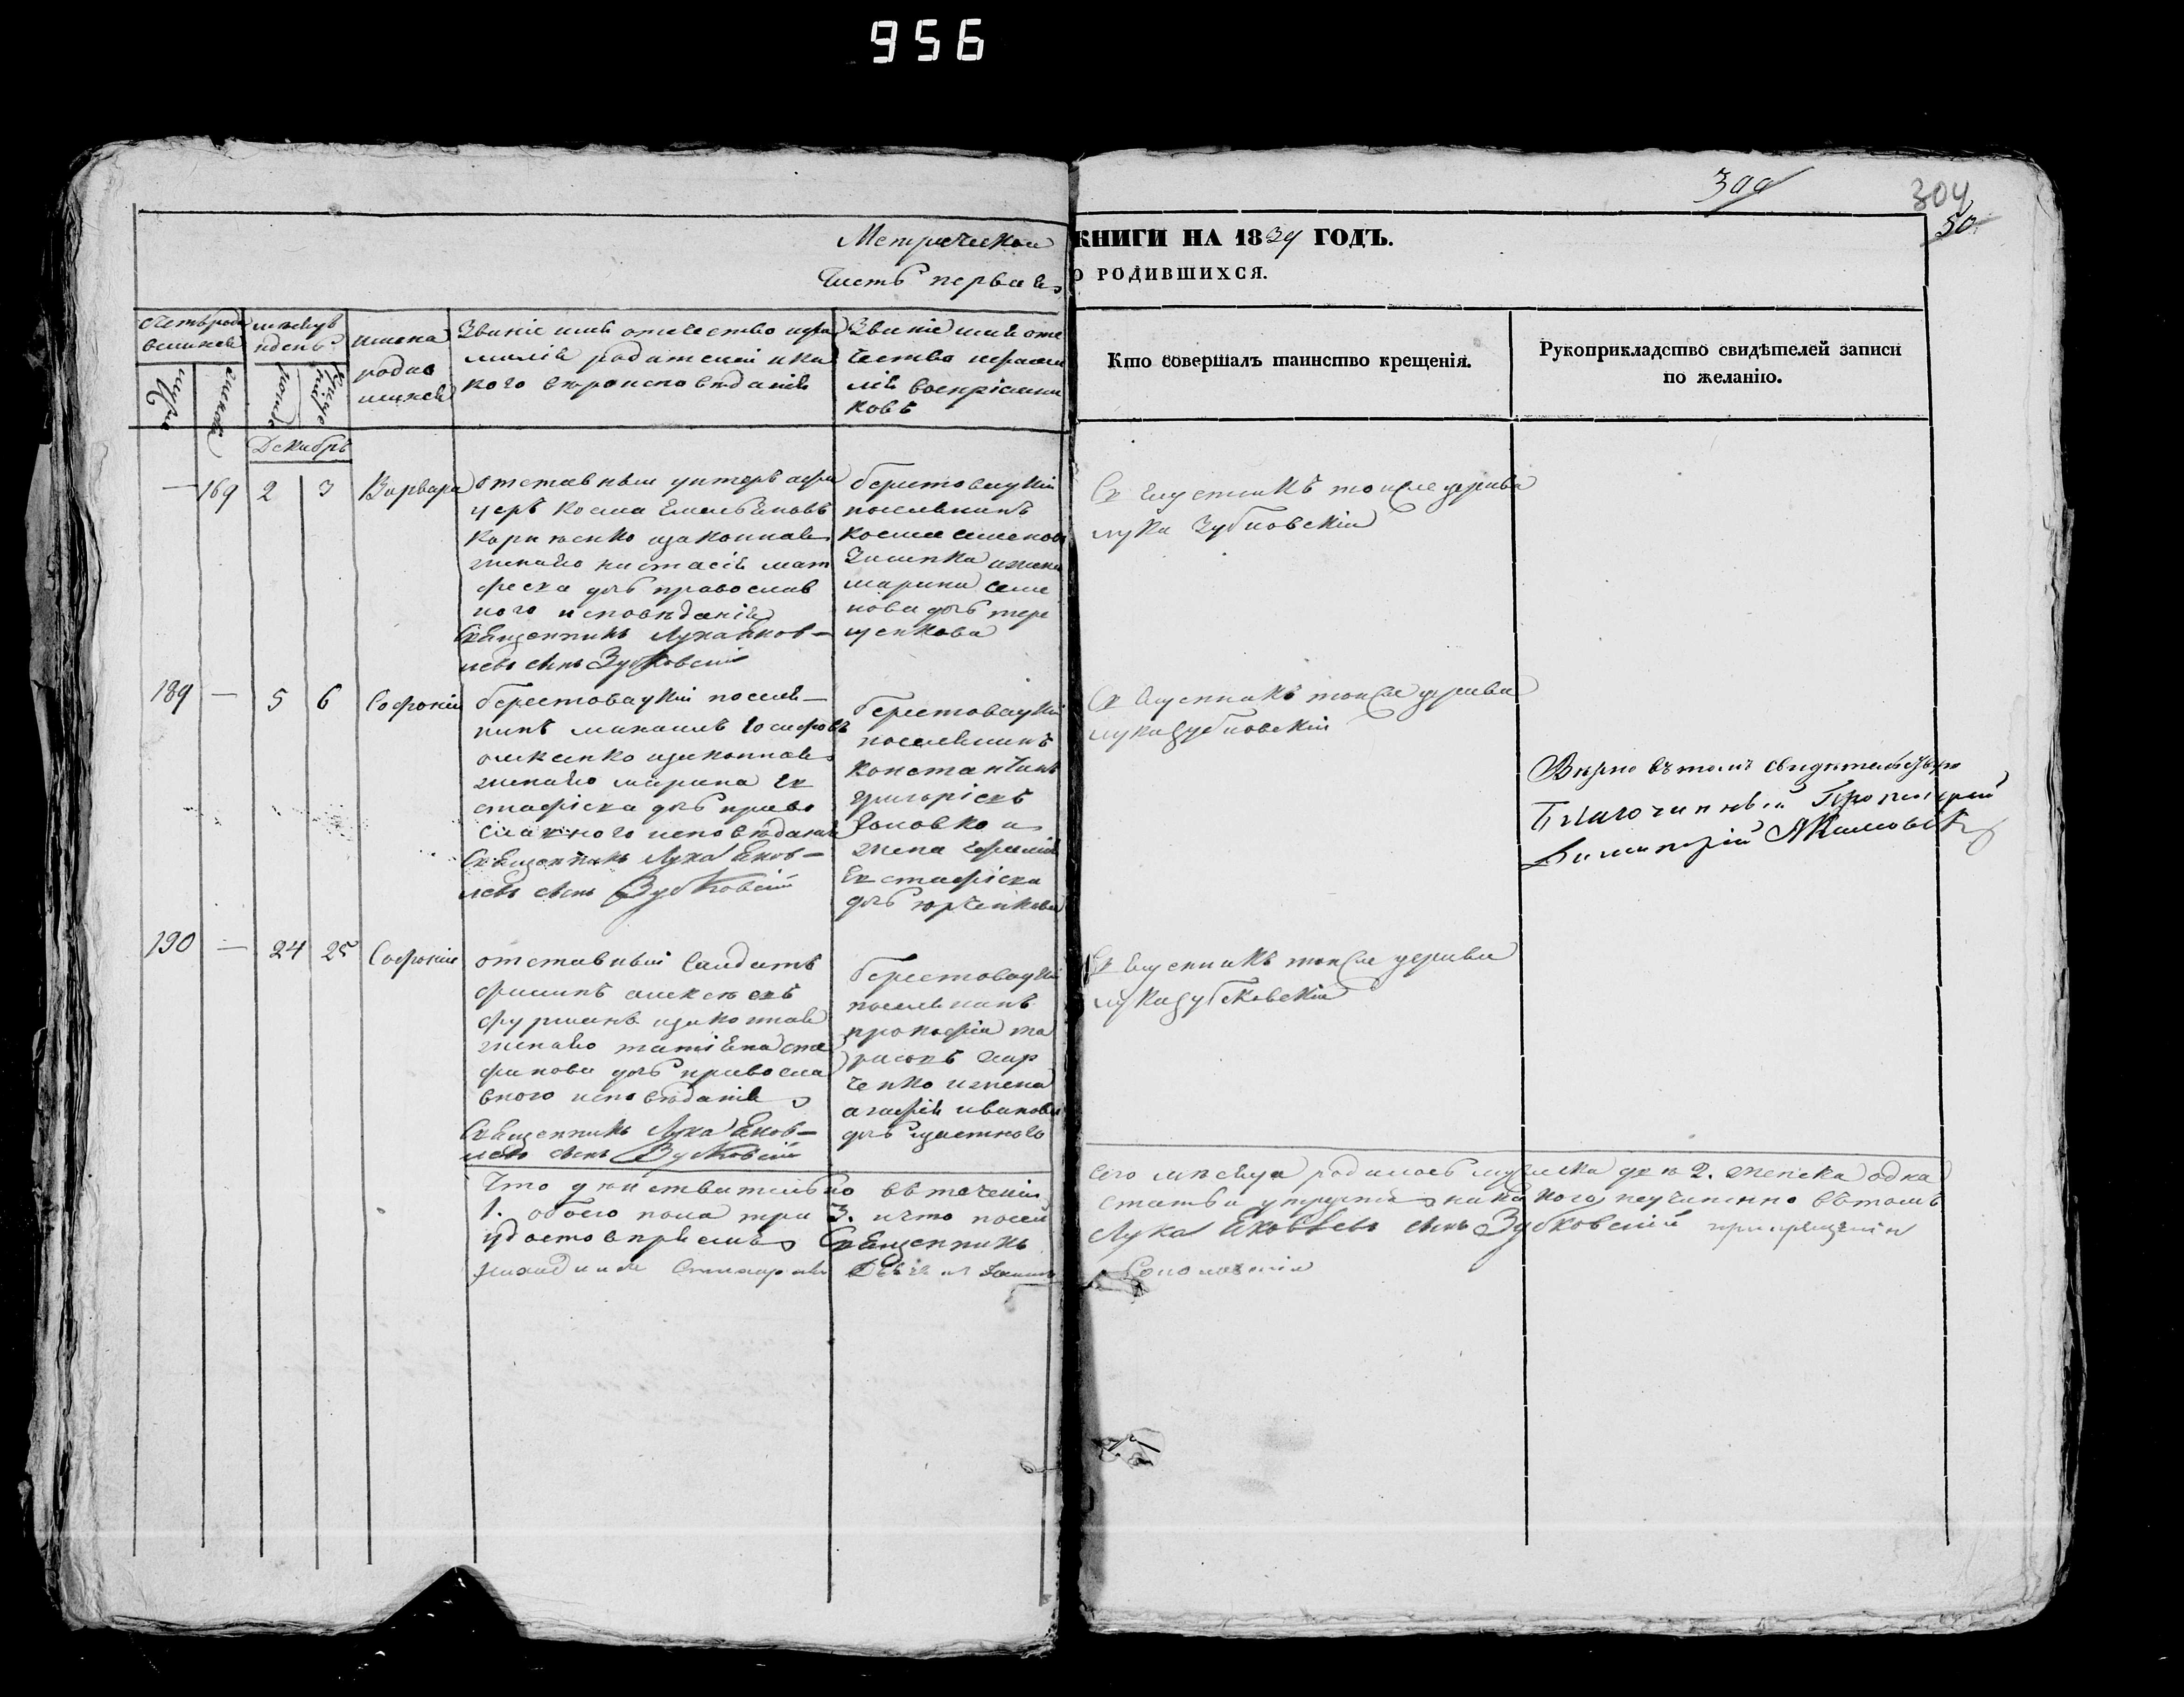 956
300
304
50
Метрической КНИГИ НА 1834 ГОДЪ.
Часть первая О РОДИВШИХСЯ.
Счетъ роди
вшихся
мѣсяцъ
и день
имена
родив
шихся
Званіе имя отечество и фа
милія родителей и ка
кого вѣроисповѣданія
Званіе имя оте
чество и фами
лія воспріемни
ковъ
Кто совершалъ таинство крещенія.
Рукоприкладство свидѣтелей записи
по желанію.
муж
женска
рожде
креще
нія
Декабрь
— 169 2 3 Варвара
отставный унтеръ афи
церъ Косма Емельяновъ
Кориженко и законная
жена его Настасія Мат
феева дочь православ
ного исповѣданія
Священникъ Лука Яков-
левъ сынъ Зубковскій
берестовацкій
поселянинъ
Косма Семеновъ
Зименка и жена
Марина Семе
нова дочь Тере
щенкова
Священникъ тоя же церкви
Лука Зубковскій
189 — 5 6 Софроній
берестовацкій поселя-
нинъ Михаилъ Іосифовъ
Олженко и законная
жена его Марина Ев
стафіева дочь право
славного исповѣданія
Священникъ Лука Яков-
левъ сынъ Зубковскій
берестовацкій
поселянинъ
Константинъ
Григоріевъ
Головко и
жена Ефимія
Евстафіева
дочь Юрченкова
Священникъ тоя же церкви
Лука Зубковскій
Вѣрно въ томъ свидѣтельствую
Благочинный Протоіерей
Димитрій Якимовичъ
190 — 24 25 Софроній
отставный салдатъ
Филипъ Алексѣевъ
Фурманъ и законная
жена его Татіяна Сте
фанова дочь правосла
вного исповѣданія
Священникъ Лука Яков-
левъ сынъ Зубковскій
берестовацкій
поселянинъ
Прокофій Та
расовъ Хар
ченко и жена
Агафія Иванова
дочь Щастного
Священникъ тоя же церкви
Лука Зубковскій
Что дѣйствительно въ теченіи сего мѣсяца родилось мужеска два 2. женска одна
1. обоего пола три 3. и что посей статьѣ упущенія никакого неучиненно въ томъ
удостовѣряемъ Священникъ Лука Яковлевъ сынъ Зубковскій